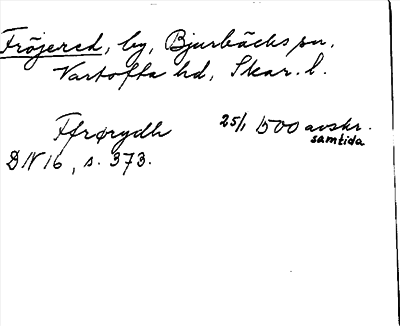 Fröjered, by, Bjurbäcks sn.
Vartofta hd, Skar. l.
Ffrørydh 25/1 1500 avskr.
samtida
DN 16, s. 373.